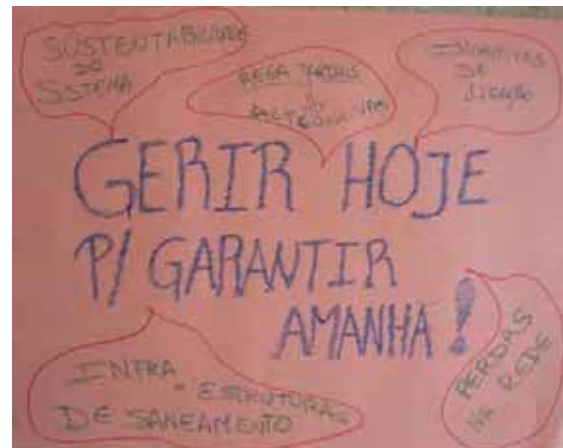 SUSTENTABILIDADE
DO
SISTEMA
REGA JARDINS
DE
GERIR HOJE
P/ GARANTIR
AMANHA!
INFRA-ESTRUTURAS
DE SANEAMENTO
PERDAS
NA REDE